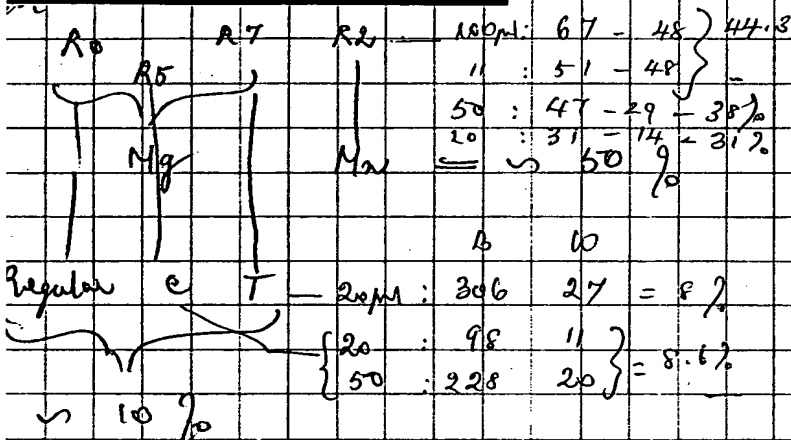 R0 R7 R2 — 100µl: 67 - 48 } 44.3
R5 11 : 51 - 48 -
50 : 47 - 29 - 38%
20 : 31 - 14 - 31%
Mg Mn = ~ 50 %
B W
Regular C T — 20µl : 306 27 = 8%
{ 20 : 98 11
50 : 228 20 } = 8.6%
~ 10 %